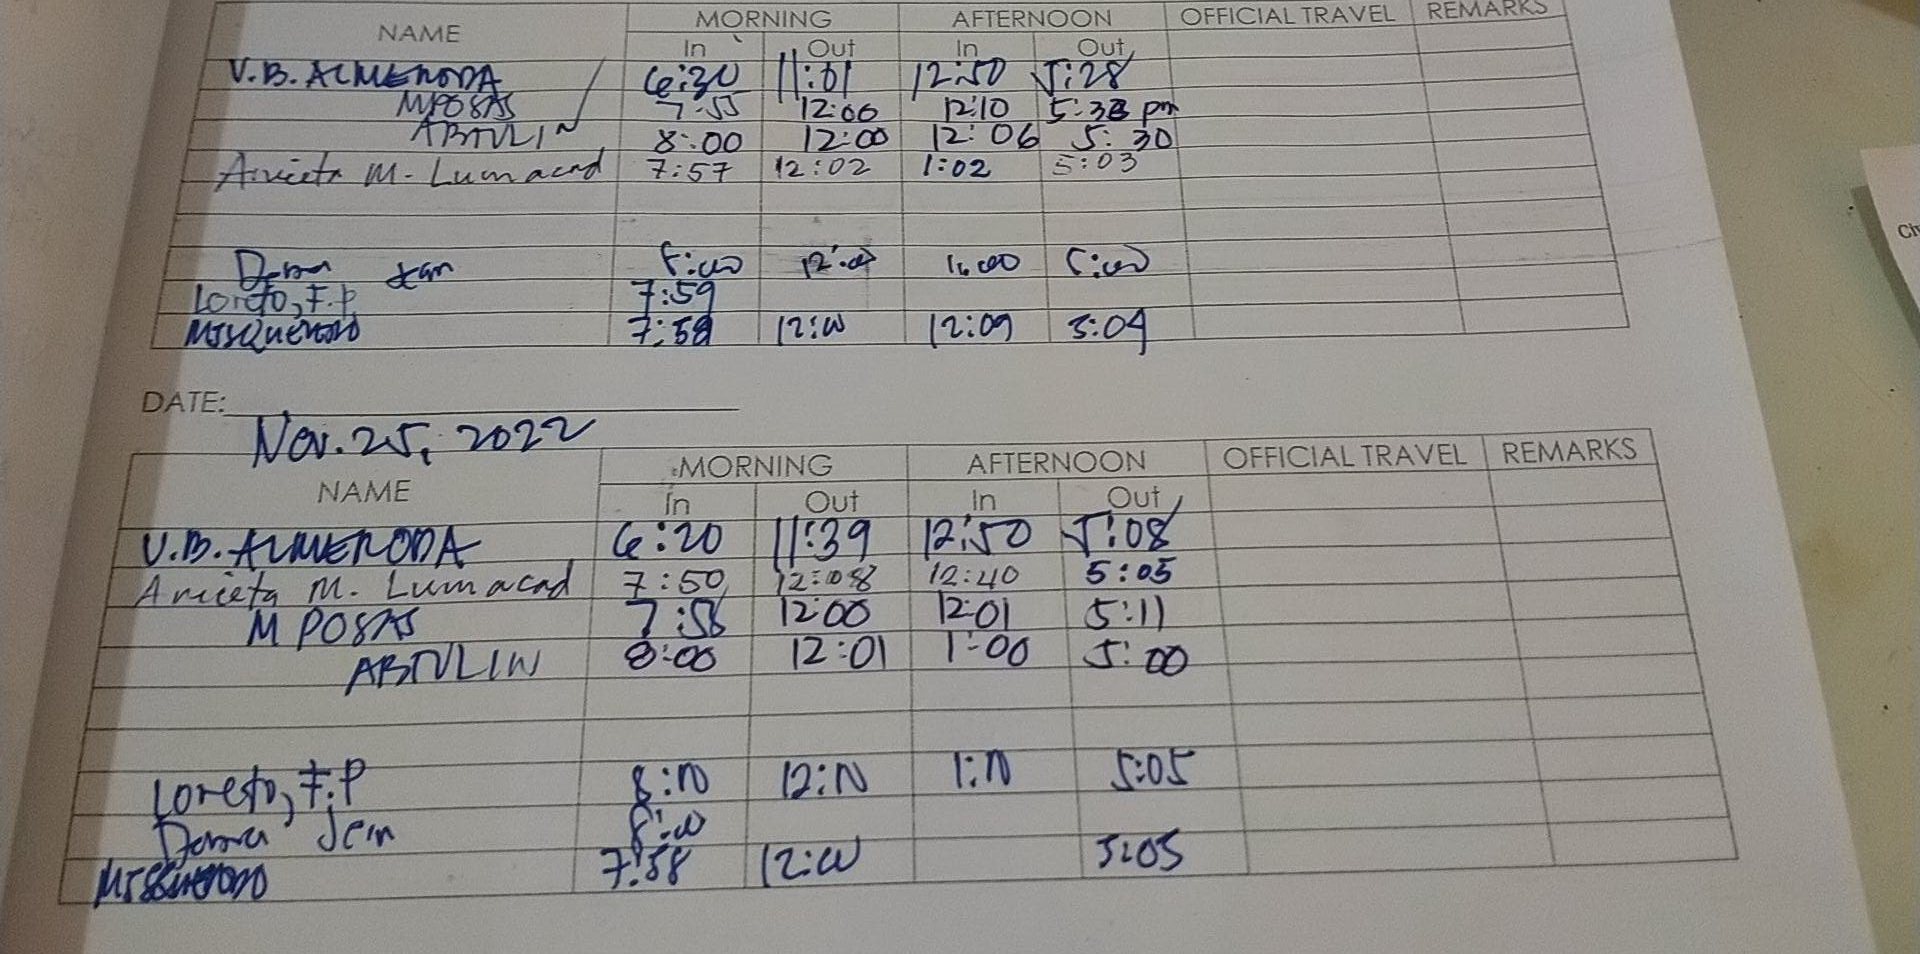 NAME MORNING AFTERNOON OFFICIAL TRAVEL REMARKS
In Out In Out
V.B. ALMERODA 6:30 11:01 12:50 5:28
MPOSAS 7:55 12:00 12:10 5:33 pm
ABTULIN 8:00 12:00 12:06 5:30
Anieta M. Lumacad 7:57 12:02 1:02 5:03
Loreto, F.P 7:59
7:58 12:00 12:09 5:04
DATE:
Nov. 25, 2022
NAME MORNING AFTERNOON OFFICIAL TRAVEL REMARKS
In Out In Out
V.B. ALMERODA 6:20 11:39 12:50 5:08
Anieta M. Lumacad 7:50 12:08 12:40 5:05
M POSAS 7:58 12:00 12:01 5:11
ABTULIN 8:00 12:01 1:00 5:00
Loreto, F.P 8:N 12:N 1:N 5:05
8:00
7:58 12:00 5:05